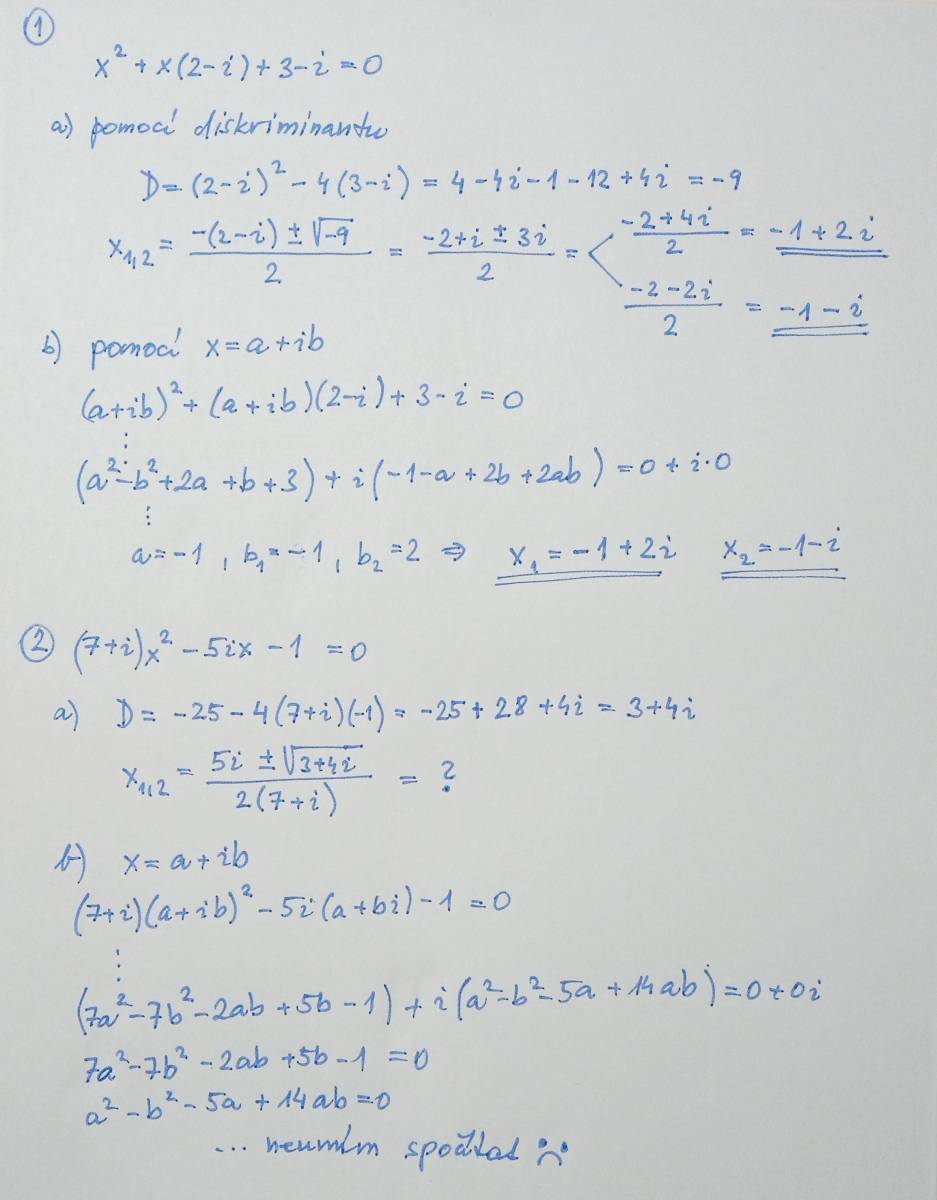 ①
x² + x(2-i) + 3-i = 0
a) pomocí diskriminantu
D = (2-i)² - 4(3-i) = 4-4i-1-12+4i = -9
x₁,₂ = (-(2-i) ± √-9)/2 = (-2+i ± 3i)/2 = < (-2+4i)/2 = -1+2i
(-2-2i)/2 = -1-i
b) pomocí x=a+ib
(a+ib)² + (a+ib)(2-i) + 3-i = 0
⋮
(a²-b²+2a+b+3) + i(-1-a+2b+2ab) = 0+i·0
⋮
a=-1, b₁=-1, b₂=2 ⇒ x₁=-1+2i x₂=-1-i
② (7+i)x² - 5ix - 1 = 0
a) D = -25-4(7+i)(-1) = -25+28+4i = 3+4i
x₁,₂ = (5i ± √3+4i)/2(7+i) = ?
b) x=a+ib
(7+i)(a+ib)² - 5i(a+bi) - 1 = 0
⋮
(7a²-7b²-2ab+5b-1) + i(a²-b²-5a+14ab) = 0+0i
7a²-7b²-2ab+5b-1 = 0
a²-b²-5a+14ab=0
... neumím spočítat :(